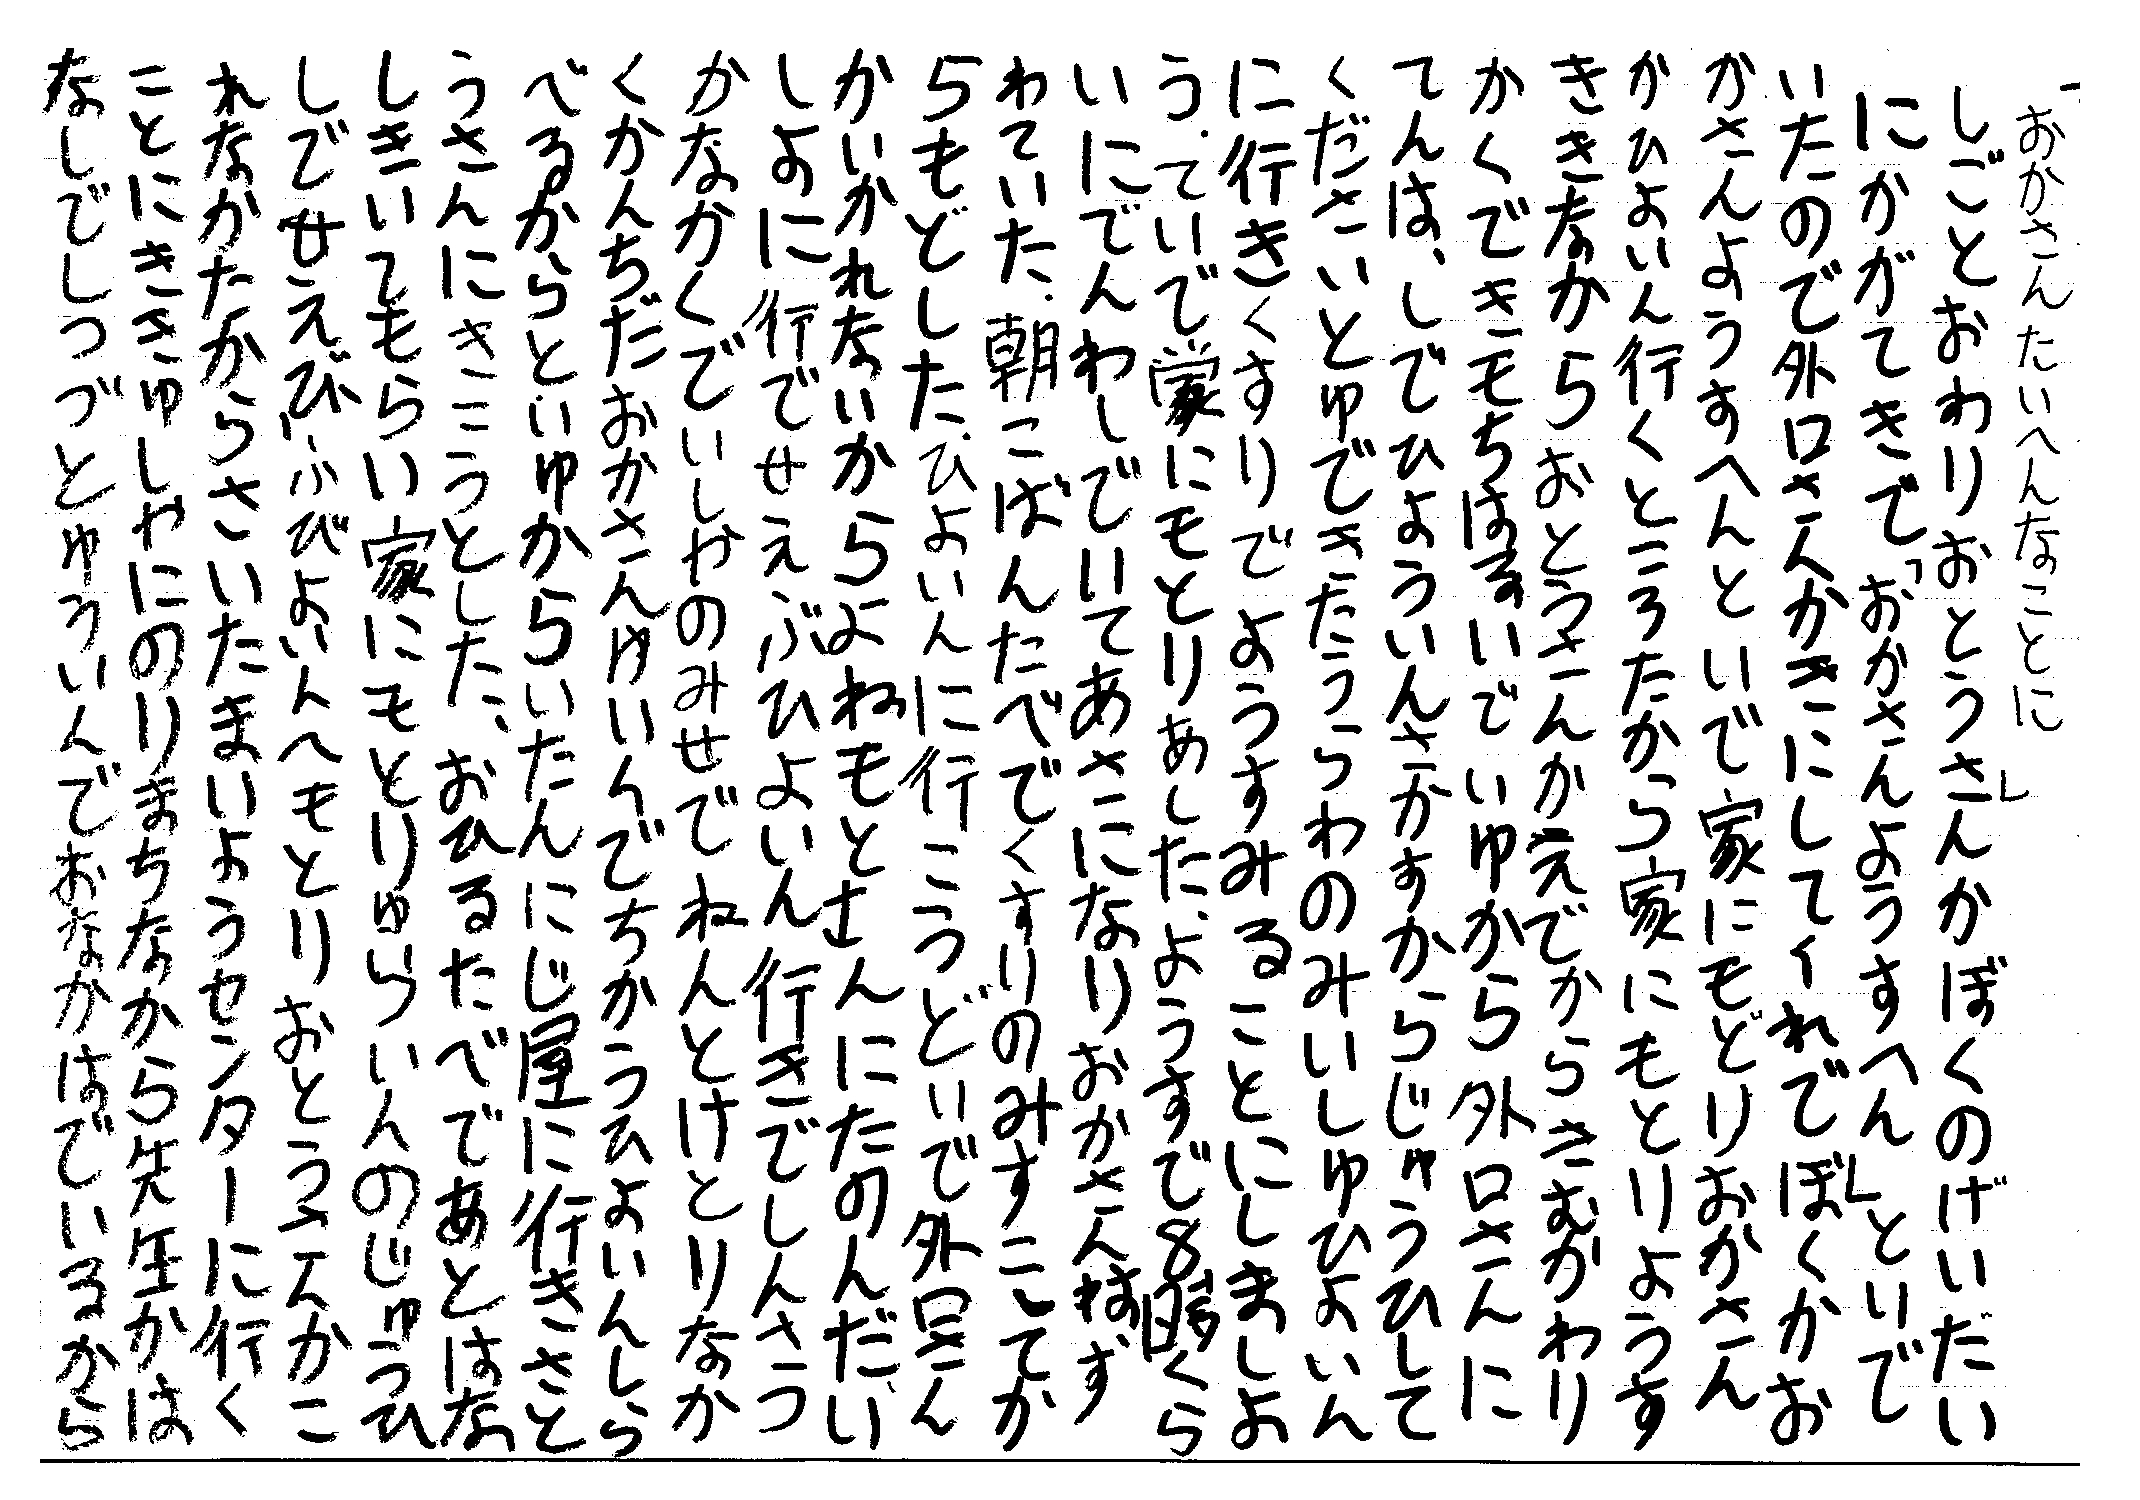 「おかさんたいへんなことに」
しごとおわりおとうさんかぼくのげいだい
にかがてきで「おかさんようすへん」といで
いたので外口さんかきにしてイれでぼくかお
がさんようすへんといで家にモどりおかさん
かひよいん行くところたから家にもとりようす
ききなからおとうさんかえでからきむかわり
かくできモちはるいでいゆから外口さんに
てんは、しでひよういんさかすからじゅうひして
くださいとゆできたうらわのみいしゆひよいん
に行きくすりでようすみることにしましよ
う.ていで家にモとりあした、ようすで8時くら
いにでんわしでいてあさになりおかさんねず
わていた.朝こばんたべでくすりのみすこてか
らもどした、ひよいんに行こうどいで外口さん
かいかれないからよねもとさんにたのんだい
しよに行でせえぶひよいん行きでしんさつ
かなかくでいしやのみせでねんとけとりなか
くかんちだおかさんゆいんでちかうひよいんしら
べるからといゆからいたんにじ屋に行きさと
うさんにきこうとした、おひるたべであとはな
しきいてもらい家にモとりゅらいんのじゅうひ
しでせえびぶびよいんへもとりおとうさんかこ
れなかたからさいたまいようセンターに行く
ことにききゅしやにのりまちなから先生かは
なしでしつづとゅういんでおなかはでいるから